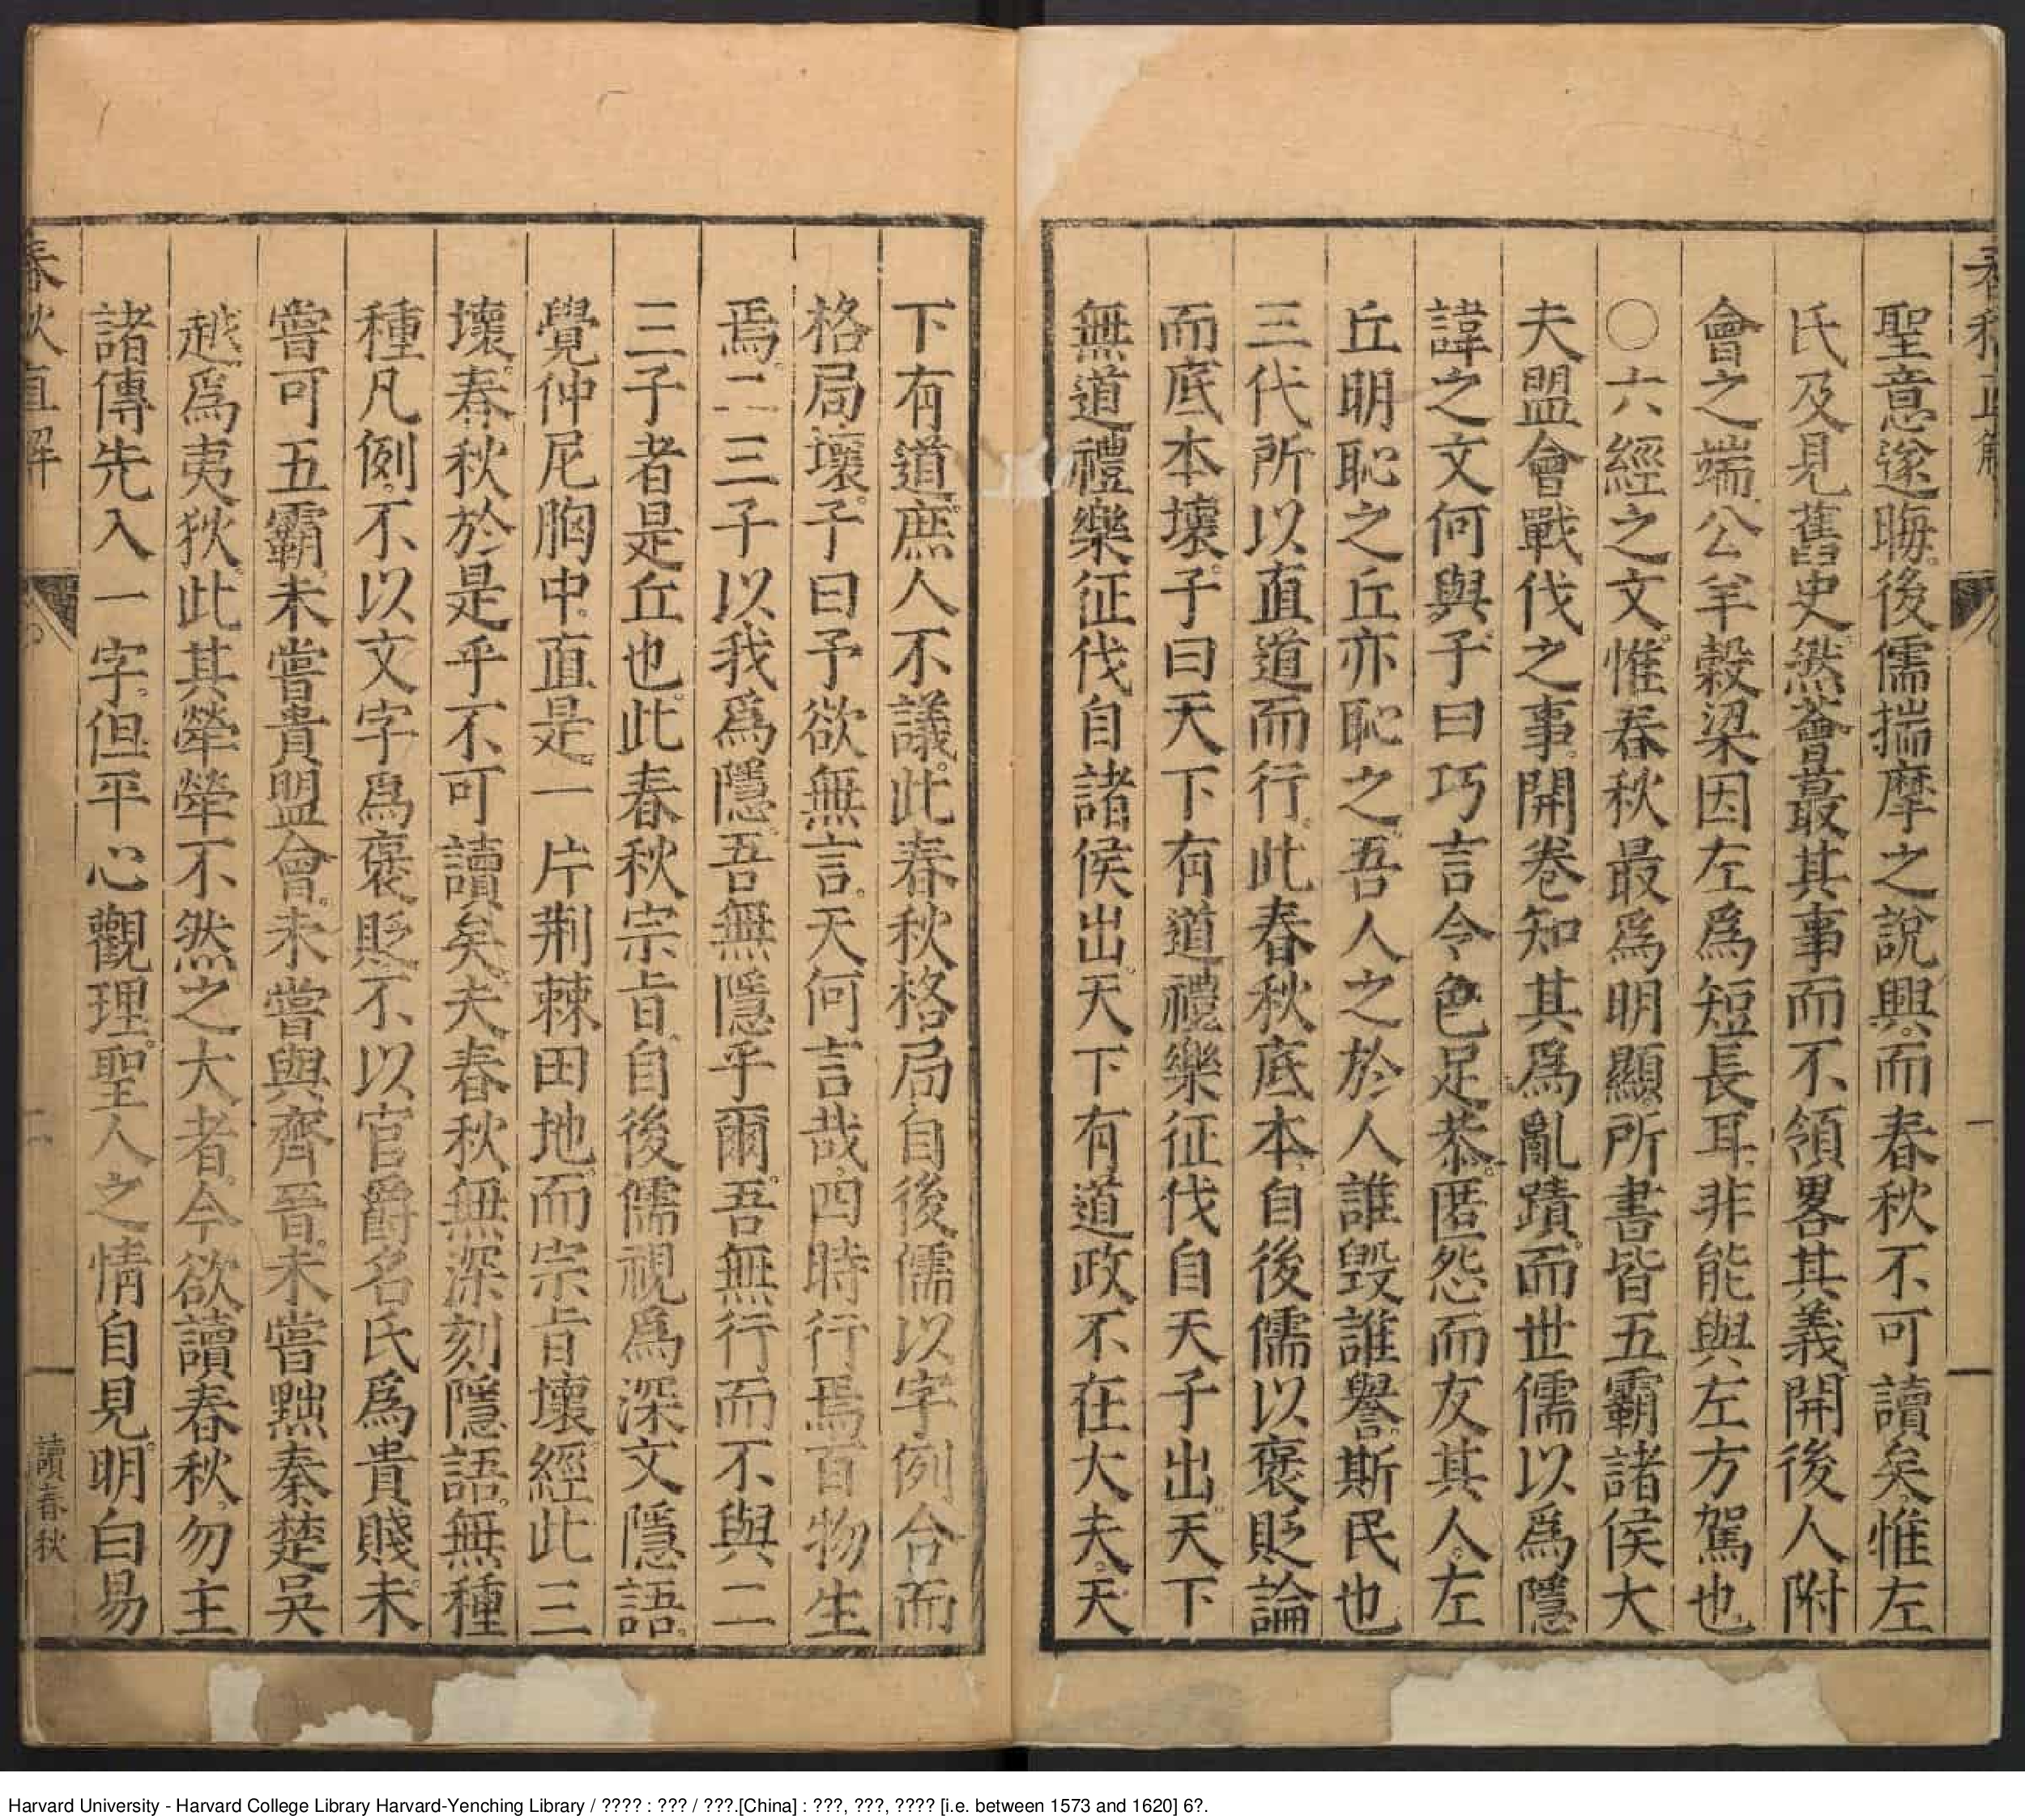 聖意遂晦。後儒揣摩之說興。而春秋不可讀矣惟左
氏及見舊史。然薈蕞其事而不領畧其義開後人附
會之端。公羊糓梁因左爲短長耳。非能與左方駕也
○六經之文。惟春秋最爲明顯。所書皆五霸諸侯大
夫盟會戰伐之事。開卷知其爲亂蹟。而世儒以爲隱
諱之文何與。子曰巧言令色足恭。匿怨而友其人。左
丘明恥之丘亦恥之。吾人之於人誰毀誰譽。斯民也
三代所以直道而行。此春秋底本。自後儒以褒貶論
而底本壞。子曰天下有道禮樂征伐自天子出。天下
無道禮樂征伐自諸侯出。天下有道政不在大夫。天
下有道。庶人不議。此春秋格局。自後儒以字例合而
格局壞。子曰予欲無言。天何言哉。四時行焉百物生
焉。二三子以我爲隱。吾無隱乎爾。吾無行而不與二
三子者是丘也。此春秋宗旨。自後儒視爲深文隱語。
覺仲尼胸中。直是一片荆棘田地。而宗旨壞經此三
壞。春秋於是乎不可讀矣。夫春秋無深刻隱語。無種
種凡例。不以文字爲褒貶。不以官爵名氏爲貴賤未
嘗可五霸。未嘗貴盟會。未嘗與齊晉。未嘗黜秦楚吳
越爲夷狄。此其犖犖不然之大者。今欲讀春秋。勿主
諸傳先入一字。但平心觀理。聖人之情自見。明白易
春秋直解
讀春秋